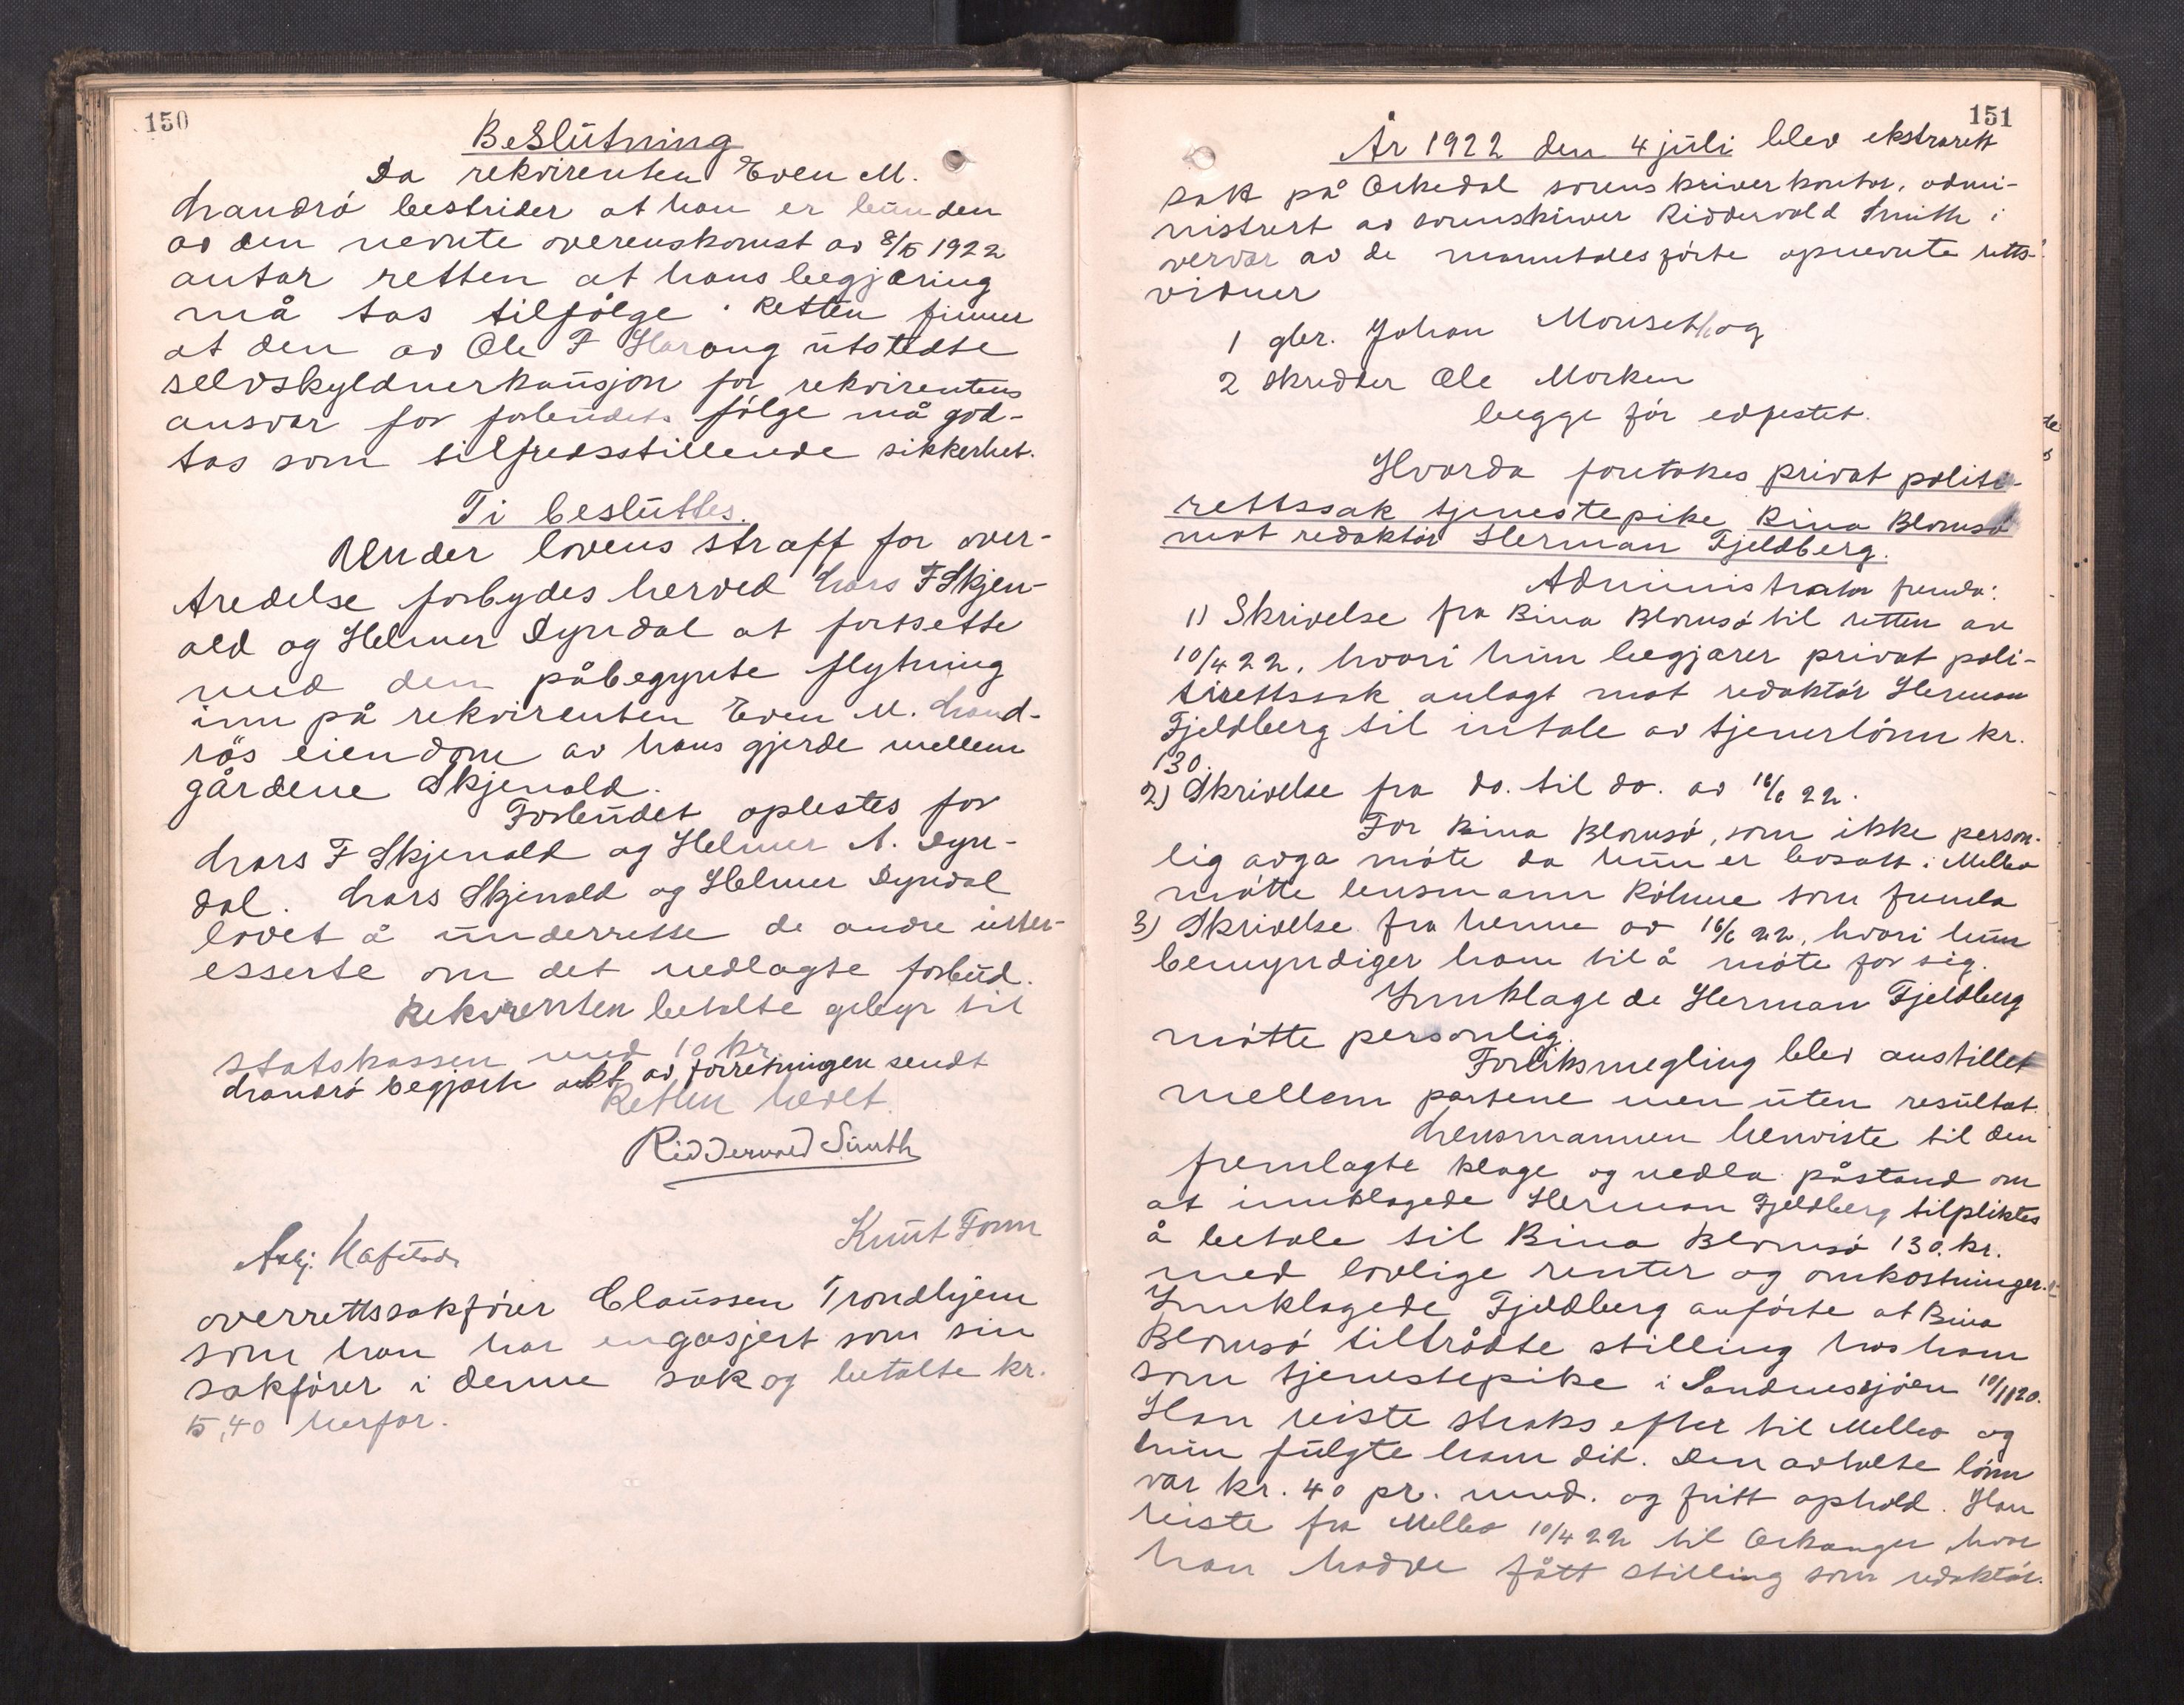 150
Beslutning
Da rekvirenten Even M.
Landrö bestrider at han er bunden
av den nevnte overenskomst av 8/5 1922
antar retten at hans begjæring
må tas tilfölge. Retten finner
at den av Ole F Harang utstedte
selvskyldnerkausjon for rekvirentens
ansvar for forbudets fölge må god-
tas som tilfredsstillende sikkerhet.
Ti besluttes.
Under lovens straff for over-
tredelse forbydes herved Lars F Skjen-
ald og Helmer Dyrdal at fortsette
med den påbegynte flytning
inn på rekvirenten Even M. Land-
rös eiendom av hans gjerde mellem
gårdene Skjenald.
Forbudet oplestes for
Lars F Skjenald og Helmer A. Dyr-
dal. Lars Skjenald og Helmer Dyrdal
lovet å underrette de andre inter-
esserte om det nedlagte forbud.
Rekvirenten betalte gebyr til
statskassen med 10 kr
Landrö begjærte akt av forretningen sendt
Retten hevet.
Ridderwold Smith
Knut Form
Asbj. Hafstad
overrettssakförer Claussen Trondhjem
som han har engasjert som sin
sakförer i denne sak og betalte kr.
5,40 herfor.
151
År 1922 den 4 juli blev ekstrarett
satt på Orkedal sorenskriverkontor, admi-
nistrert av sorenskriver Ridderwold Smith i
nervær av de manntalsförte opnevnte retts-
vidner
1 gbr. Johan Monseth og
2 skredder Ole Morken
begge för edfestet.
Hvorda foretokes privat politi-
rettssak tjenestepike Bina Blomsö
mot redaktör Herman Fjeldberg.
Administrator fremla:
1) Skrivelse fra Bina Blomsö til retten av
10/4 22, hvori hun begjærer privat poli-
tirettssak anlagt mot redaktör Herman
Fjeldberg til intale av tjenerlönn kr.
130.
2) Skrivelse fra do. til do. av 16/6 22.
For Bina Blomsö, som ikke person-
lig avga möte da hun er bosatt i Melbo
mötte lensmann Röhme som fremla
3) Skrivelse fra henne av 16/6 22, hvori hun
bemyndiger ham til å möte for sig.
Innklagede Herman Fjeldberg
mötte personlig.
Forliksmegling blev anstillet
mellem partene men uten resultat.
Lensmannen henviste til den
fremlagte klage og nedla påstand om
at innklagede Herman Fjeldberg tilpliktes
å betale til Bina Blomsö 130. kr.
med lovlige renter og omkostninger.
Innklagede Fjeldberg anförte at Bina
Blomsö tiltrådte stilling hos ham
som tjenestepike i Sandnessjöen 10/11 20.
Han reiste straks efter til Melbo og
hun fulgte ham dit. Den avtalte lönn
var kr. 40 pr. mnd. og fritt ophold. Han
reiste fra Melbo 10/4 22 til Orkanger hvor
han hadde fått stilling som redaktör.